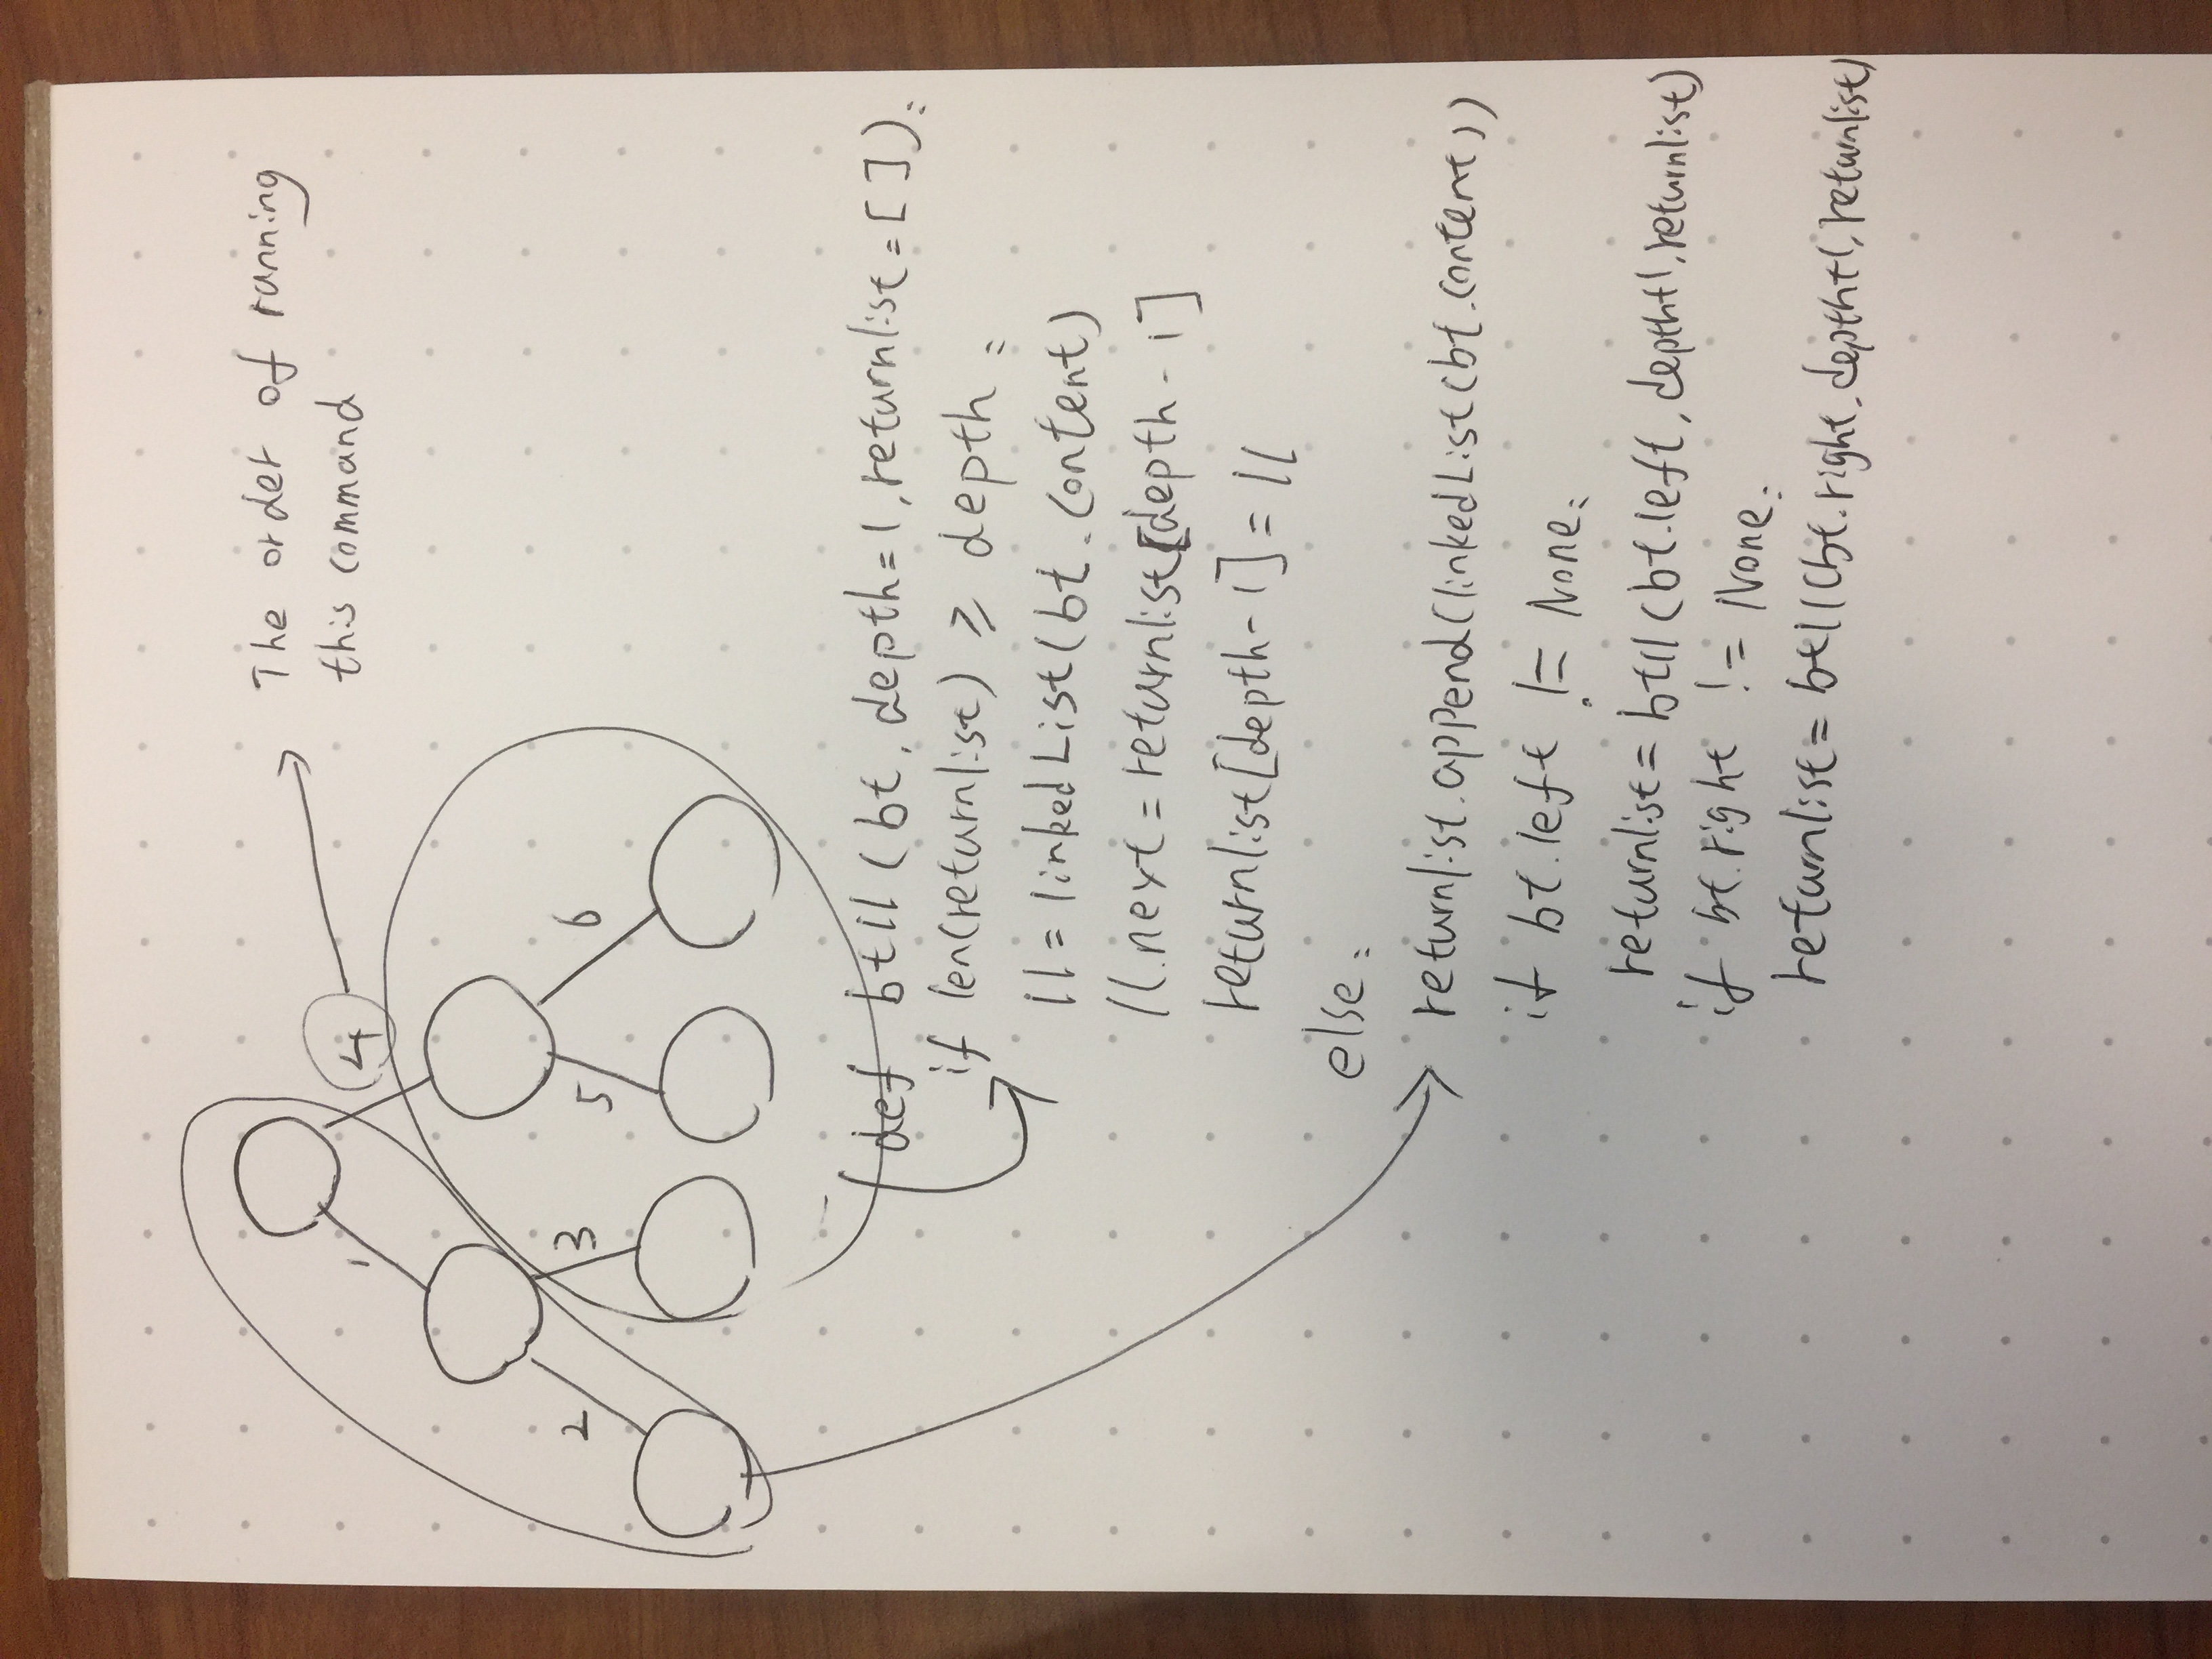 The order of running
this command
1
4
2
3
5
6
def btll(bt, depth=1, returnlist=[]):
if len(returnlist) ≥ depth:
ll = linkedList(bt.content)
ll.next = returnlist[depth-1]
returnlist[depth-1] = ll
else:
returnlist.append(linkedList(bt.content))
if bt.left != None:
returnlist = btll(bt.left, depth+1, returnlist)
if bt.right != None:
returnlist = btll(bt.right, depth+1, returnlist)